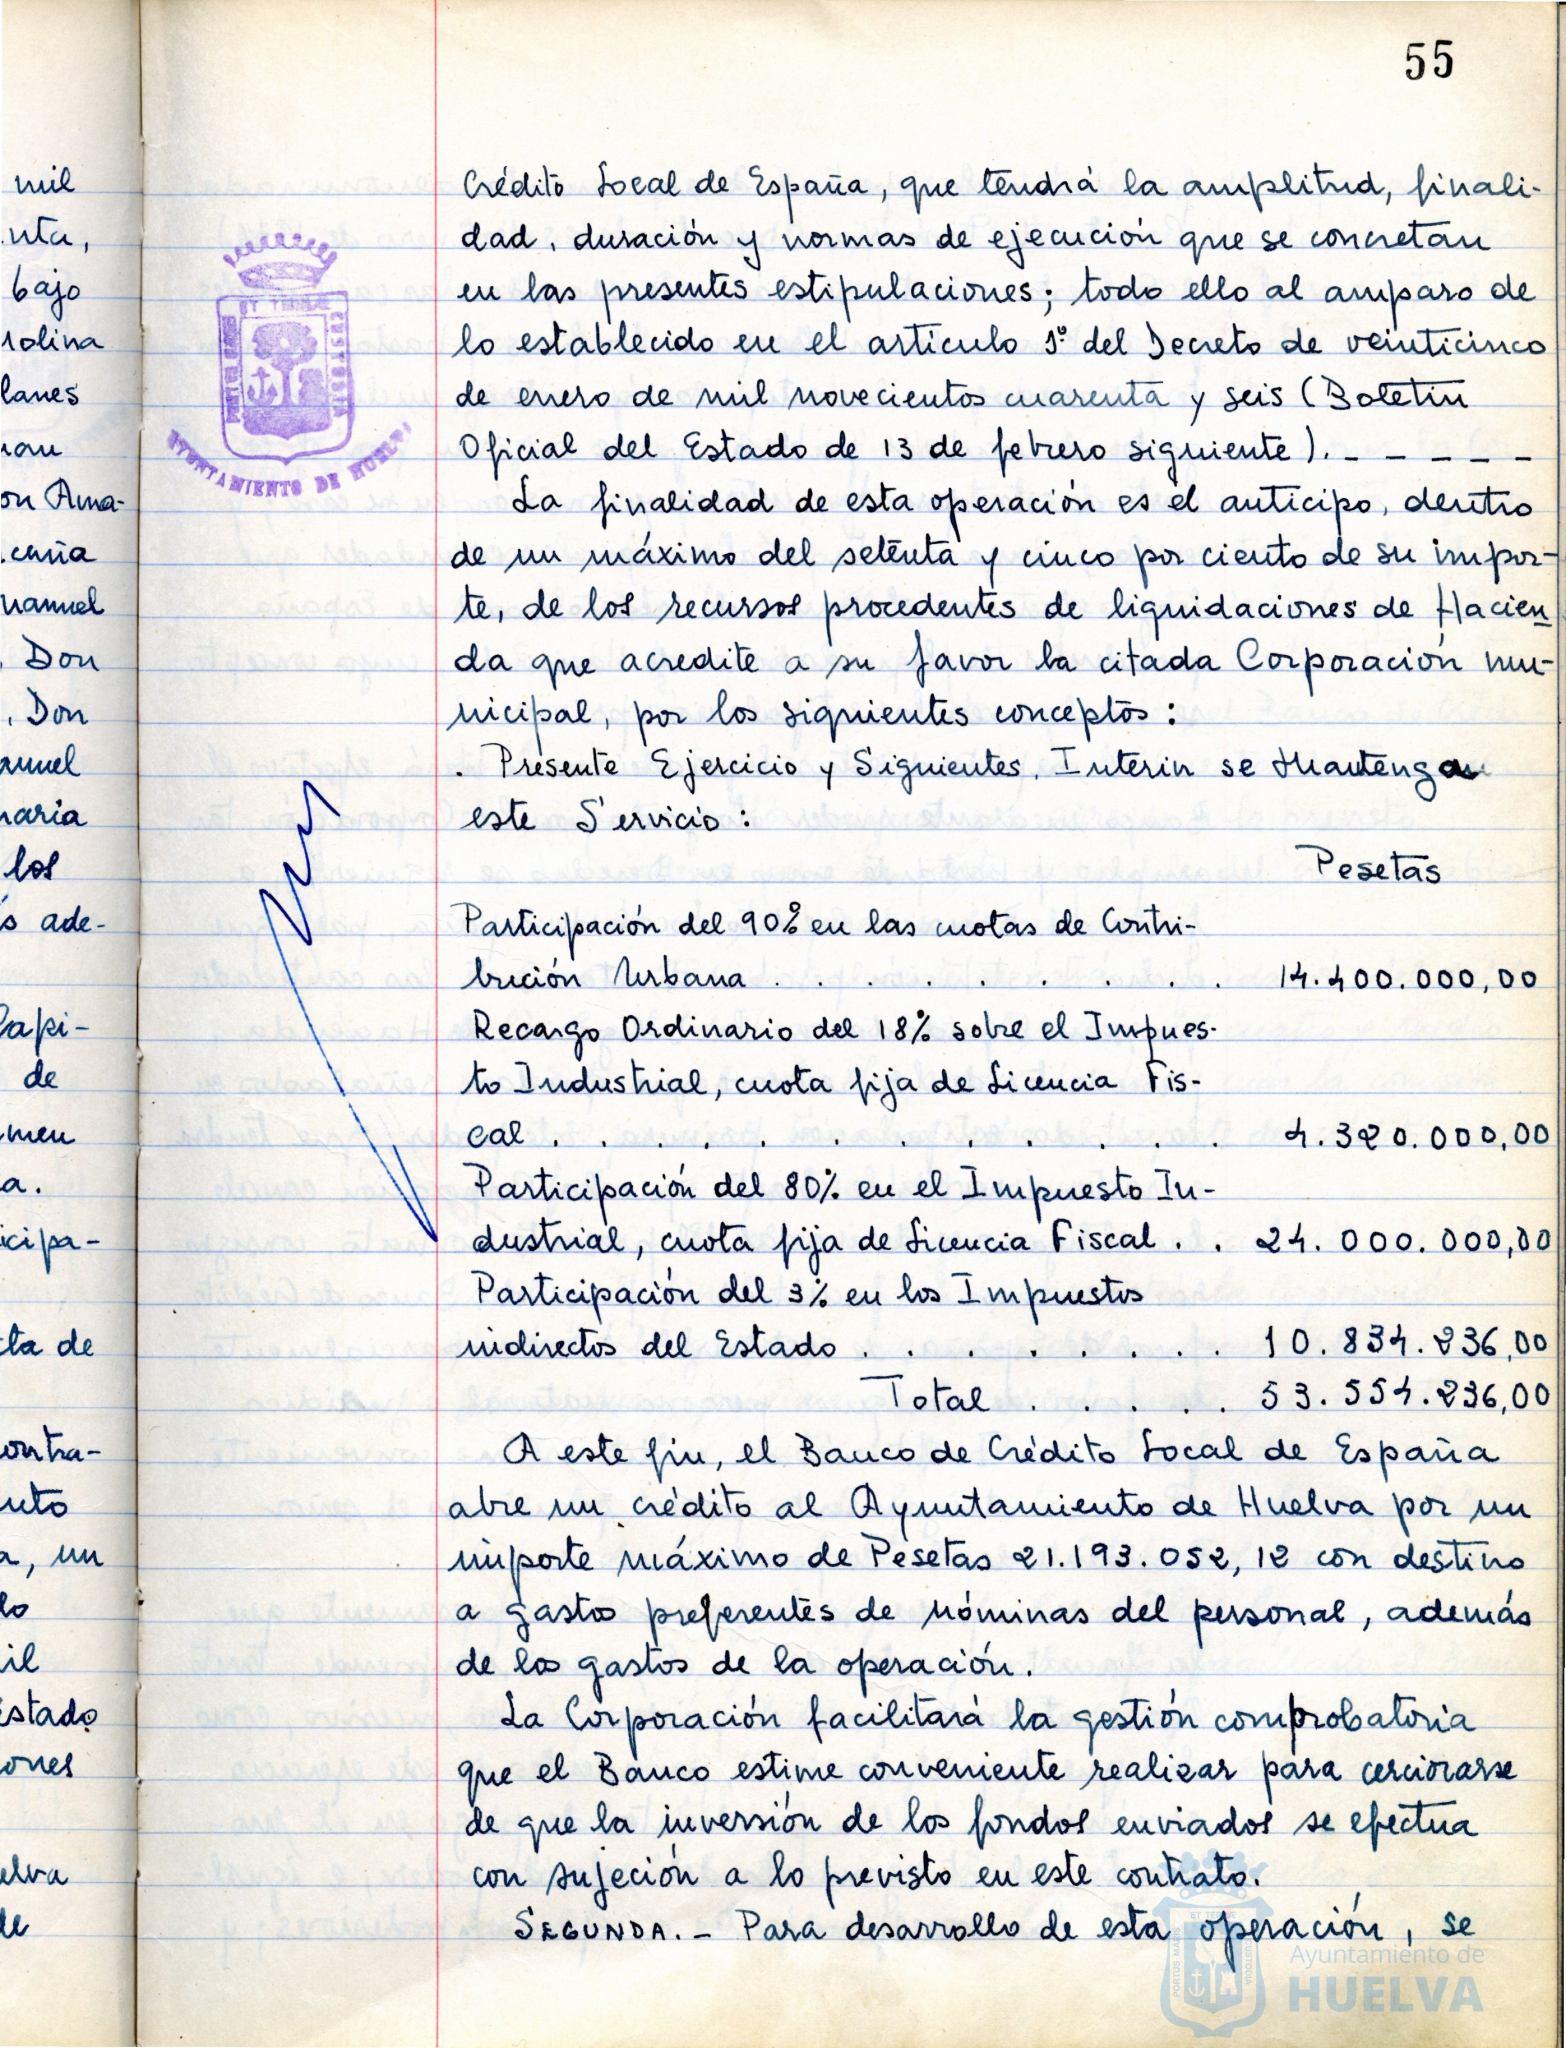 55
mil
nta,
bajo
rolina
lanes
on Ama-
manuel
Don
, Don
maria
los
s ade-
Capi-
de
men
a.
icipa-
cta de
ontra-
nto
a, un
lo
il
Estado
iones
elva
de
ET TERRAE
CUSTODIA
AYUNTAMIENTO DE HUELVA
Crédito Local de España, que tendrá la amplitud, finali-
dad, duración y normas de ejecución que se concretan
en las presentes estipulaciones; todo ello al amparo de
lo establecido en el artículo 1º del Decreto de veinticinco
de enero de mil novecientos cuarenta y seis (Boletín
Oficial del Estado de 13 de febrero siguiente). _ _ _ _ _
La finalidad de esta operación es el anticipo, dentro
de un máximo del setenta y cinco por ciento de su impor-
te, de los recursos procedentes de liquidaciones de Hacien
da que acredite a su favor la citada Corporación mu-
nicipal, por los siguientes conceptos:
. Presente Ejercicio y Siguientes, Interin se Mantengan
este Servicio:
Pesetas
Participación del 90% en las cuotas de Contri-
bución Urbana . . . . . . . . . 14.400.000,00
Recargo Ordinario del 18% sobre el Impues-
to Industrial, cuota fija de Licencia Fis-
cal . . . . . . . . . . . . . 4.320.000,00
Participación del 80% en el Impuesto In-
dustrial, cuota fija de Licencia Fiscal . . 24.000.000,00
Participación del 3% en los Impuestos
indirectos del Estado . . . . . . . 10.834.236,00
Total . . . . . 53.554.236,00
A este fin, el Banco de Crédito Local de España
abre un crédito al Ayuntamiento de Huelva por un
importe máximo de Pesetas 21.193.052,12 con destino
a gastos preferentes de nóminas del personal, además
de los gastos de la operación.
La Corporación facilitará la gestión comprobatoria
que el Banco estime conveniente realizar para cerciorarse
de que la inversión de los fondos enviados se efectua
con sujeción a lo previsto en este contrato.
SEGUNDA. - Para desarrollo de esta operación, se
Ayuntamiento de
HUELVA